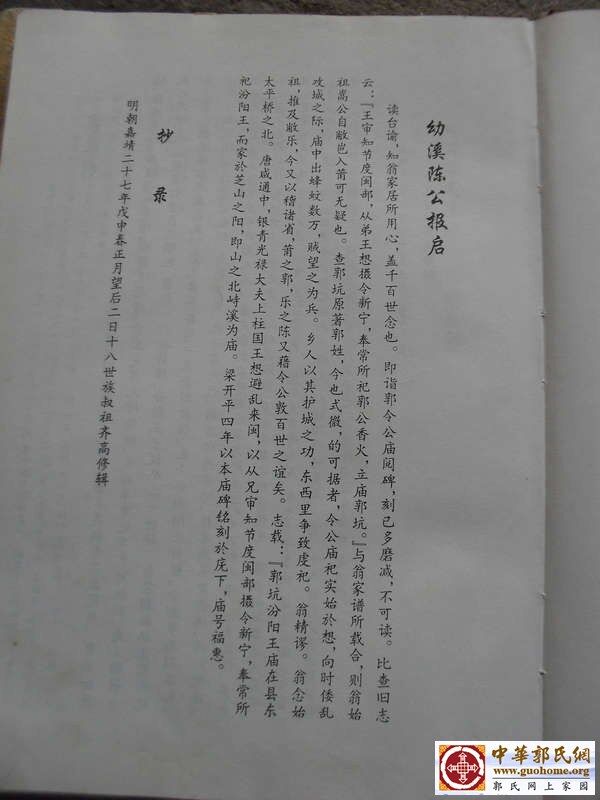 幼溪陈公报启
读台谕，知翁家居所用心，盖千百世念也。即诣郭令公庙阅碑，刻已多磨减，不可读。比查旧志
云：『王审知节度闽部，从弟王想摄令新宁，奉常所祀郭公香火，立庙郭坑。』与翁家谱所载合，则翁始
祖嵩公自敝邑入莆可无疑也。查郭坑原著郭姓，今也式微，的可据者，令公庙祀实始於想，向时倭乱
攻城之际，庙中出蜂蚊数万，贼望之为兵。乡人以其护城之功，东西里争致虔祀。翁精谬。翁念始
祖，推及敝乐，今又以稽诸省，莆之郭，乐之陈又藉令公敦百世之谊矣。志载：『郭坑汾阳王庙在县东
太平桥之北。唐咸通中，银青光禄大夫上柱国王想避乱来闽，以从兄审知节度闽部摄令新宁，奉常所
祀汾阳王，而家於芝山之阳，即山之北峙溪为庙。梁开平四年以本庙碑铭刻於庑下，庙号福惠。
抄录
明朝嘉靖二十七年戊申春正月望后二日十八世族叔祖齐高修辑
中華郭氏網
www.guohome.org
郭氏网上家园